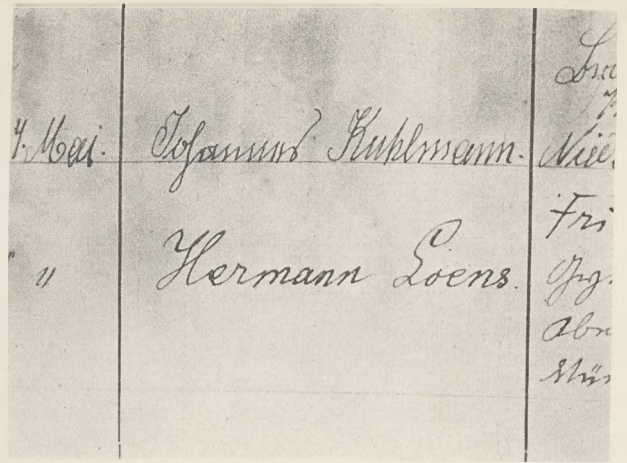 4. Mai. Johannes Kuhlmann.
" Hermann Loens.
Fri